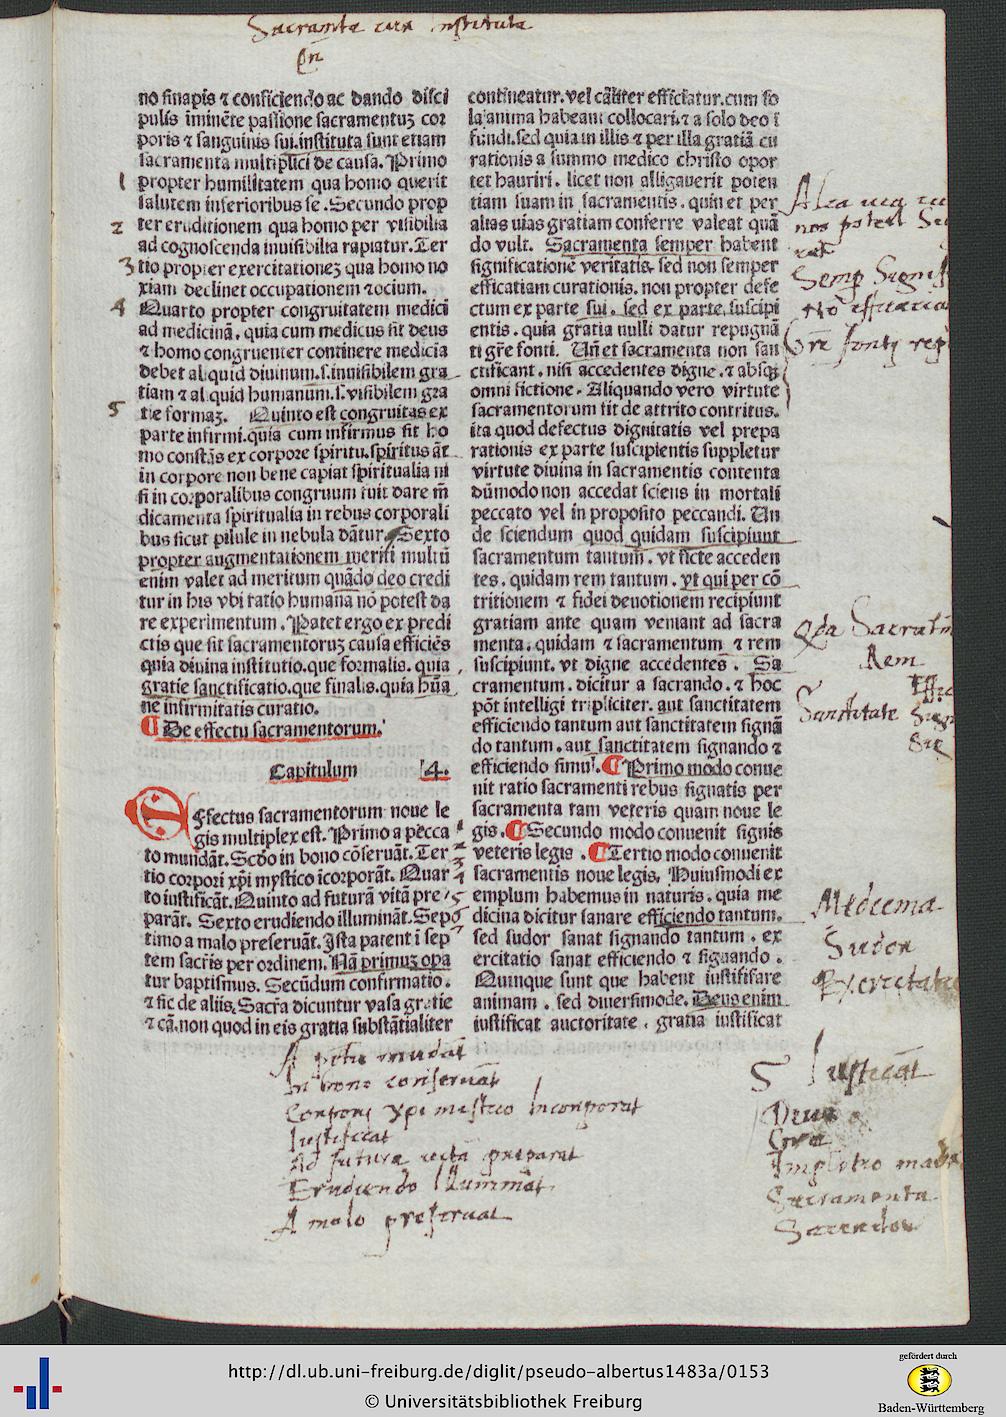 Sacramēta cum instituta
no sinapis ⁊ conficiendo ac dando disci
pulis iminēte passione sacramentuꝫ cor
poris ⁊ sanguinis sui. instituta sunt etiam
sacramenta multiplici de causa. Primo
1 propter humilitatem qua homo querit
salutem inferioribus se. Secundo prop
2 ter eruditionem qua homo per visibilia
ad cognoscenda inuisibilia rapiatur. Ter
3 tio propter exercitationeꝫ qua homo no
xiam declinet occupationem ⁊ ocium.
4 Quarto propter congruitatem medici
ad medicinā. quia cum medicus sit deus
⁊ homo congruenter continere medicia
debet aliquid diuinum. s. inuisibilem gra
tiam ⁊ aliquid humanum. s. visibilem gra
5 tie formaꝫ. Quinto est congruitas ex
parte infirmi. quia cum infirmus sit ho
mo constās ex corpore spiritu. spiritus āt
in corpore non bene capiat spiritualia ni
si in corporalibus congruum fuit dare m̄
dicamenta spiritualia in rebus corporali
bus sicut pilule in nebula dātur. Sexto
propter augmentationem meriti multū
enim valet ad meritum quādo deo credi
tur in his vbi ratio humana nō potest da
re experimentum. Patet ergo ex predi
ctis que sit sacramentoruꝫ causa efficiēs
quia diuina institutio. que formalis. quia
gratie sanctificatio. que finalis. quia hūa
ne infirmitatis curatio.
¶ De effectu sacramentorum.
Capitulum 4.
Effectus sacramentorum noue le
gis multiplex est. Primo a pecca
to mundāt. Scdo in bono cōseruāt. Ter
tio corpori xp̄i mystico icorporāt. Quar
to iustificāt. Quinto ad futurā vitā pre
parāt. Sexto erudiendo illumināt. Sep
timo a malo preseruāt. Ista patent i sep
tem sacris per ordinem. Nā primuꝫ opa
tur baptismus. Secūdum confirmatio.
⁊ sic de aliis. Sacra dicuntur vasa gratie
⁊ cā. non quod in eis gratia substātialiter
contineatur. vel cāliter efficiatur. cum so
la anima habeant collocari. ⁊ a solo deo i
fundi. sed quia in illis ⁊ per illa gratiā cu
rationis a summo medico christo opor
tet hauriri. licet non alligauerit poten
tiam suam in sacramentis. quin et per
alias uias gratiam conferre valeat quā
do vult. Sacramenta semper habent
significationē veritatis. sed non semper
efficatiam curationis. non propter defe
ctum ex parte sui. sed ex parte suscipi
entis. quia gratia nulli datur repugnā
ti gr̄e fonti. Un̄ et sacramenta non san
ctificant. nisi accedentes digne. ⁊ absqꝫ
omni fictione. Aliquando vero virtute
sacramentorum fit de attrito contritus.
ita quod defectus dignitatis vel prepa
rationis ex parte suscipientis suppletur
virtute diuina in sacramentis contenta
dūmodo non accedat sciens in mortali
peccato vel in proposito peccandi. Un
de sciendum quod quidam suscipiunt
sacramentum tantum. vt ficte acceden
tes. quidam rem tantum. vt qui per cō
tritionem ⁊ fidei deuotionem recipiunt
gratiam ante quam veniant ad sacra
menta. quidam ⁊ sacramentum ⁊ rem
suscipiunt. vt digne accedentes. Sa
cramentum. dicitur a sacrando. ⁊ hoc
pōt intelligi tripliciter. aut sanctitatem
efficiendo tantum aut sanctitatem signā
do tantum. aut sanctitatem signando ⁊
efficiendo simul. ¶ Primo modo conue
nit ratio sacramenti rebus signatis per
sacramenta tam veteris quam noue le
gis. ¶ Secundo modo conuenit signis
veteris legis. ¶ Tertio modo conuenit
sacramentis noue legis. Huiusmodi ex
emplum habemus in naturis. quia me
dicina dicitur sanare efficiendo tantum.
sed sudor sanat signando tantum. ex
ercitatio sanat efficiendo ⁊ signando.
Quinque sunt que habent iustifi̇are
animam. sed diuersimode. Deus enim
iustificat auctoritate. gratia iustificat
nō efficacia
Gr̄e fonti
Rem
Sanctitate
Medecina
Sudor
Exercitatio
A pctis mūdāt
In bono conseruāt
Corpori xpi mistico Incorporat
Iustificat
Ad futurā preparat
Erudiendo Illuminat
A malo preseruat
5 Iustificāt
Deus
Gra
Sacramenta
Sacerdos
http://dl.ub.uni-freiburg.de/diglit/pseudo-albertus1483a/0153
© Universitätsbibliothek Freiburg
gefördert durch
Baden-Württemberg